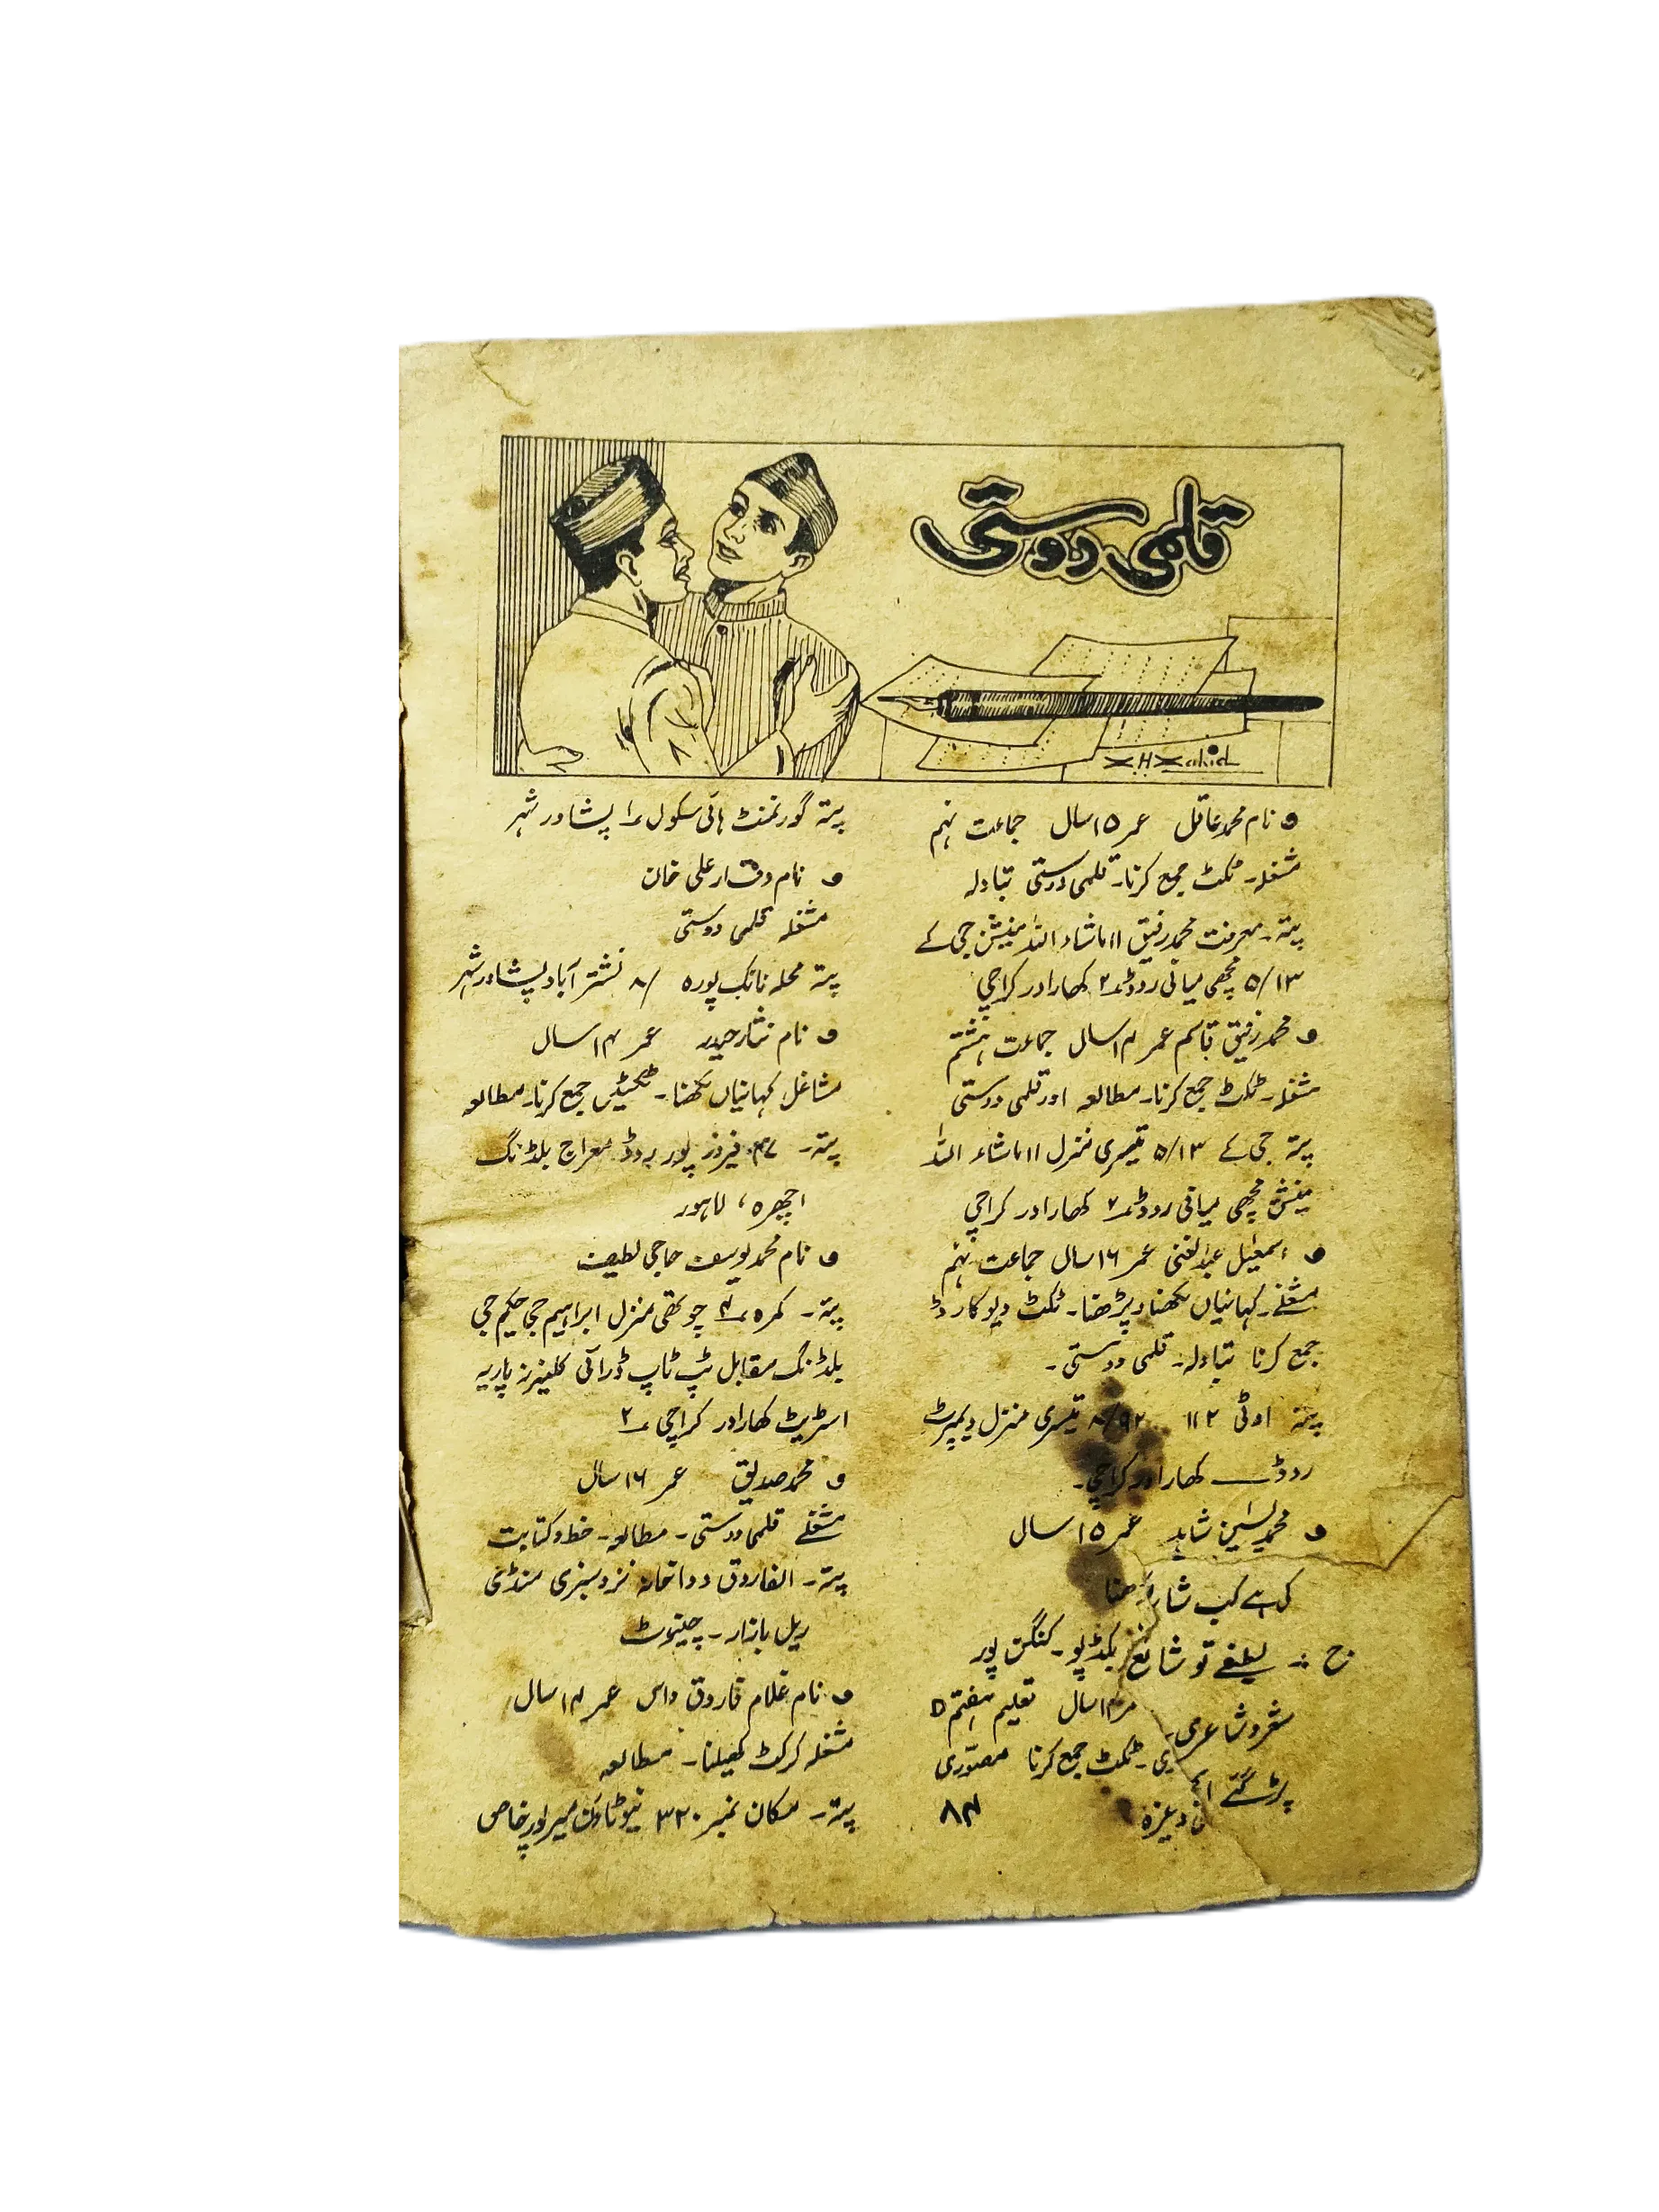 قلمی دوستی
XHZahid
نام محمد عاقل عمر ۱۵ سال جماعت نہم
مشغلہ۔ ٹکٹ جمع کرنا۔ قلمی دوستی تبادلہ
پتہ۔ معرفت محمد رفیق ۱۱ ماشاء اللہ مینشن جی کے
۵/۱۳ مچھی میانی روڈ ۲ کھارادر کراچی
محمد رفیق قاسم عمر ۱۴ سال جماعت ہشتم
مشغلہ۔ ٹکٹ جمع کرنا۔ مطالعہ اور قلمی دوستی
پتہ جی کے ۵/۱۳ تیسری منزل ۱۱ ماشاء اللہ
مینشن مچھی میانی روڈ ۲ کھارادر کراچی
اسمعٰیل عبدالغنی عمر ۱۶ سال جماعت نہم
مشغلے۔ کہانیاں لکھنا و پڑھنا۔ ٹکٹ ویوکارڈ
جمع کرنا تبادلہ۔ قلمی دوستی۔
پتہ اوٹی ۱۱۲ ۸/۹۲ تیسری منزل
روڈ کھارادر کراچی۔
محمد یٰسین شاہد عمر ۱۵ سال
ج :۔ لطیفے تو شائع بکڈپو۔ کنگن پور
شعر و شاعری ۱۴ سال تعلیم ہفتم
پڑ گئے ٹکٹ جمع کرنا مصوّری
۸۴
پتہ گورنمنٹ ہائی سکول ۱ پشاور شہر
نام وقار علی خان
مشغلہ قلمی دوستی
پتہ محلہ نانک پورہ /۸ نشتر آباد پشاور شہر
نام نثار حیدر عمر ۱۴ سال
مشاغل کہانیاں لکھنا۔ ٹکٹیں جمع کرنا۔ مطالعہ
پتہ۔ فیروز پور روڈ معراج بلڈنگ
اچھرہ، لاہور
نام محمد یوسف حاجی لطیف
پتہ۔ کمرہ ۴ چوتھی منزل ابراہیم جی حکیم جی
بلڈنگ مقابل ٹپ ٹاپ ڈرائی کلینرز پاریہ
اسٹریٹ کھارادر کراچی ۲
محمد صدیق عمر ۱۶ سال
مشغلے قلمی دوستی۔ مطالعہ۔ خط و کتابت
پتہ۔ الفاروق دواخانہ نزد سبزی منڈی
ریل بازار۔ چنیوٹ
نام غلام فاروق داس عمر ۱۴ سال
مشغلہ کرکٹ کھیلنا۔ مطالعہ
پتہ۔ مکان نمبر ۳۲۰ نیو ٹاؤن میرپور خاص